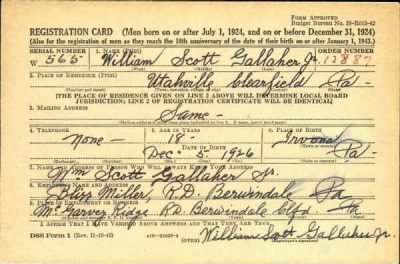 Form Approved
REGISTRATION CARD (Men born on or after July 1, 1924, and on or before December 31, 1924)
(Also for the registration of men as they reach the 18th anniversary of the date of their birth on or after January 1, 1943.)
SERIAL NUMBER 1. NAME (Print) ORDER NUMBER
W 565 William Scott Gallaher Jr. 12887
2. PLACE OF RESIDENCE (Print)
Utahville Clearfield Pa
[THE PLACE OF RESIDENCE GIVEN ON LINE 2 ABOVE WILL DETERMINE LOCAL BOARD
JURISDICTION; LINE 2 OF REGISTRATION CERTIFICATE WILL BE IDENTICAL]
3. MAILING ADDRESS
Same
4. TELEPHONE 5. AGE IN YEARS 6. PLACE OF BIRTH
None 18 Irvona
DATE OF BIRTH
Dec 5, 1926 Pa
7. NAME AND ADDRESS OF PERSON WHO WILL ALWAYS KNOW YOUR ADDRESS
Wm Scott Gallaher Sr.
8. EMPLOYER'S NAME AND ADDRESS
Bliss Miller, R.D. Berwindale, Pa
9. PLACE OF EMPLOYMENT OR BUSINESS
McGarvey Ridge R.D. Berwindale Clfd. Pa
I AFFIRM THAT I HAVE VERIFIED ABOVE ANSWERS AND THAT THEY ARE TRUE.
DSS Form 1 (Rev. 11-16-42) (OVER) William Scott Gallaher Jr.